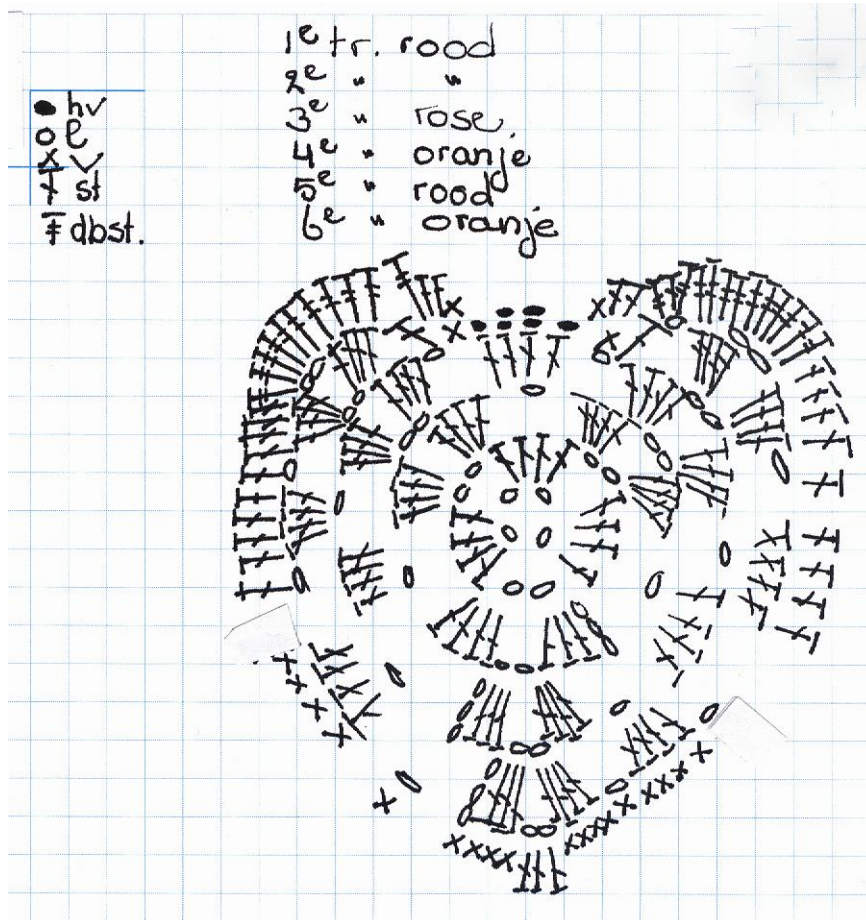 1e tr. rood
2e " "
3e " rose.
4e " oranje
5e " rood
6e " oranje
hv
l
v
st
dbst.